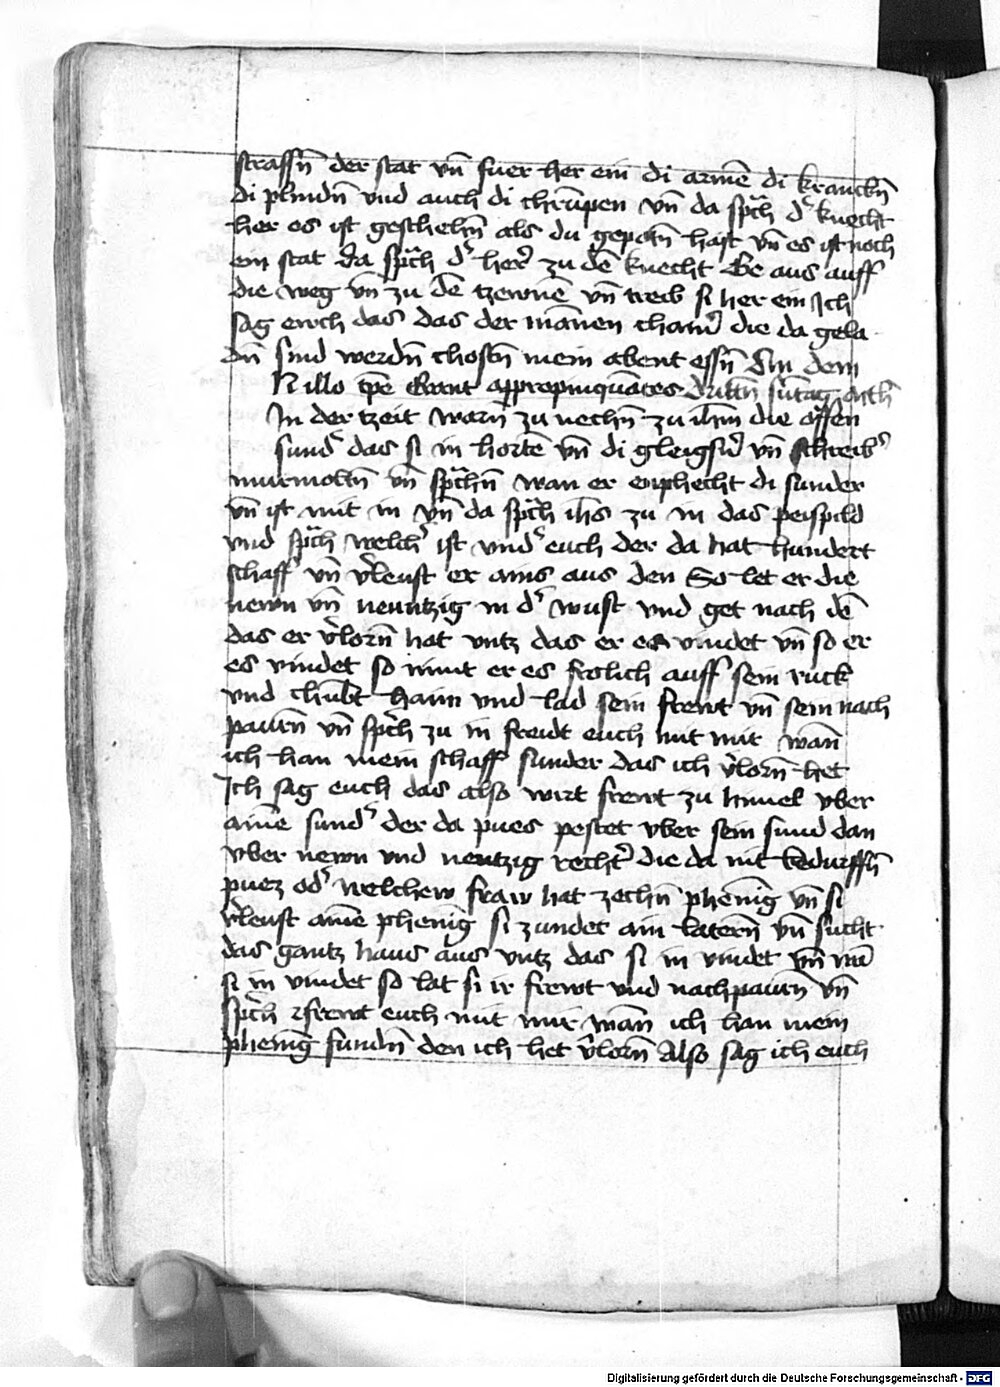 strassn̄ der stat vn̄ fuer her ein di armē di kranckn̄
di plindn̄ vnd auch di chrūpen vn̄ da sp̄ch d' knecht
her es ist geschehn̄ als du gepotn̄ hast vn̄ es ist noch
ein stat da sp̄ch d' her' zu dē knecht Ge aus auff
die weg vn̄ zu dē tzewnē vn̄ treib si her ein Ich
sag ewch das das der mānen chain' die da gela
dn̄ sind werdn̄ chostn̄ mein abent essn̄ An dem
N illo tp̄e Erant appropinquātes drittn̄ sūtag
In der tzeit warn̄ zu nechn̄ zu ihm die offen
sund' das si in hortē vn̄ di gleigsn̄' vn̄ schreib'
murmoltn̄ vn̄ sp̄chn̄ wan er enphecht di sunder
vn̄ ist mit in vn̄ da sp̄ch ih̄s zu in das peispild
vnd sp̄ch welch' ist vnd' euch der da hat hundert
schaff vn̄ v'leust er ains aus den So let er die
newn vn̄ neuntzig in d' wust vnd get nach dē
das er v'lorn̄ hat vntz das er es vindet vn̄ so er
es vindet so nimt er es frolich auff sein ruck
vnd chūbt haim vnd lad sein frewt vn̄ sein nach
pawrn̄ vn̄ sp̄ch zu in freidt euch mit mir wān
ich han mein schaff funden das ich v'lorn̄ het
Ich sag euch das also wirt frewt zu himel vber
ainē sund' der da pues pestet vber sein sund dan
vber newn vnd neutzig recht' die da nit bedurffn̄
puez od' welchew fraw hat zechn̄ phēnig vn̄ si
v'leust ainē phenīg si zundet ain latern̄ vn̄ sucht
das gantz haus aus vntz das si in vindet vn̄ wā
si in vindet so lat si ir frewt vnd nachpawrn̄ vn̄
sp̄ch frewt euch mit mir wān ich han mein
phenīg fundn̄ den ich het v'lorn̄ Also sag ich euch
Digitalisierung gefördert durch die Deutsche Forschungsgemeinschaft - DFG